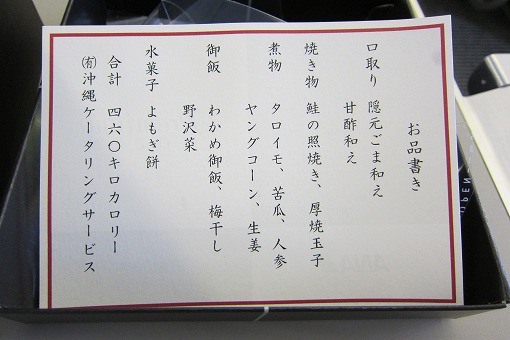 お品書き
口取り 隠元ごま和え
甘酢和え
焼き物 鮭の照焼き、厚焼玉子
煮物 タロイモ、苦瓜、人参
ヤングコーン、生姜
御飯 わかめ御飯、梅干し
野沢菜
水菓子 よもぎ餅
合計 四六〇キロカロリー
㈲沖縄ケータリングサービス
OPEN